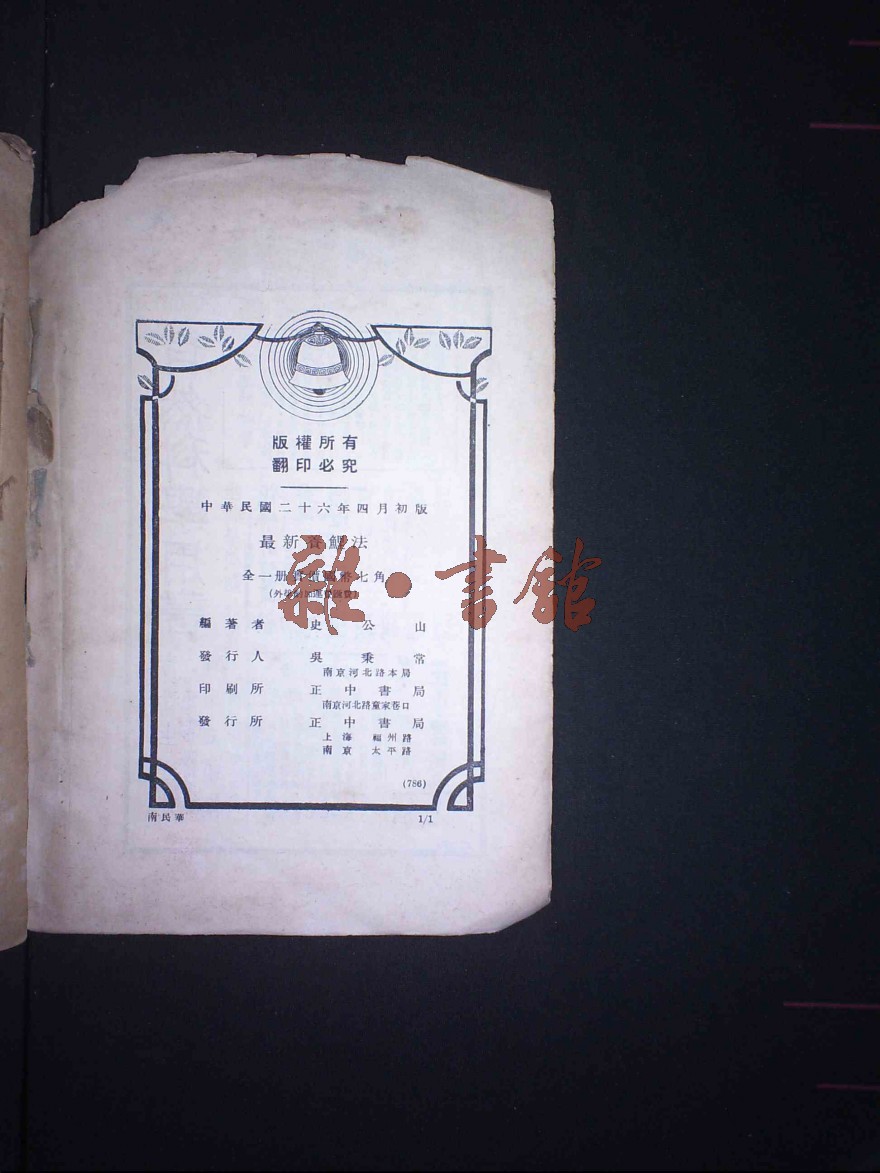 版權所有
翻印必究
中華民國二十六年四月初版
最新養鯉法
全一册實價國幣七角
(外埠酌加運費匯費)
編著者 史公山
發行人 吳秉常
南京河北路本局
印刷所 正中書局
南京河北路童家巷口
發行所 正中書局
上海 福州路
南京 太平路
(786)
南民華 1/1
雜·書館